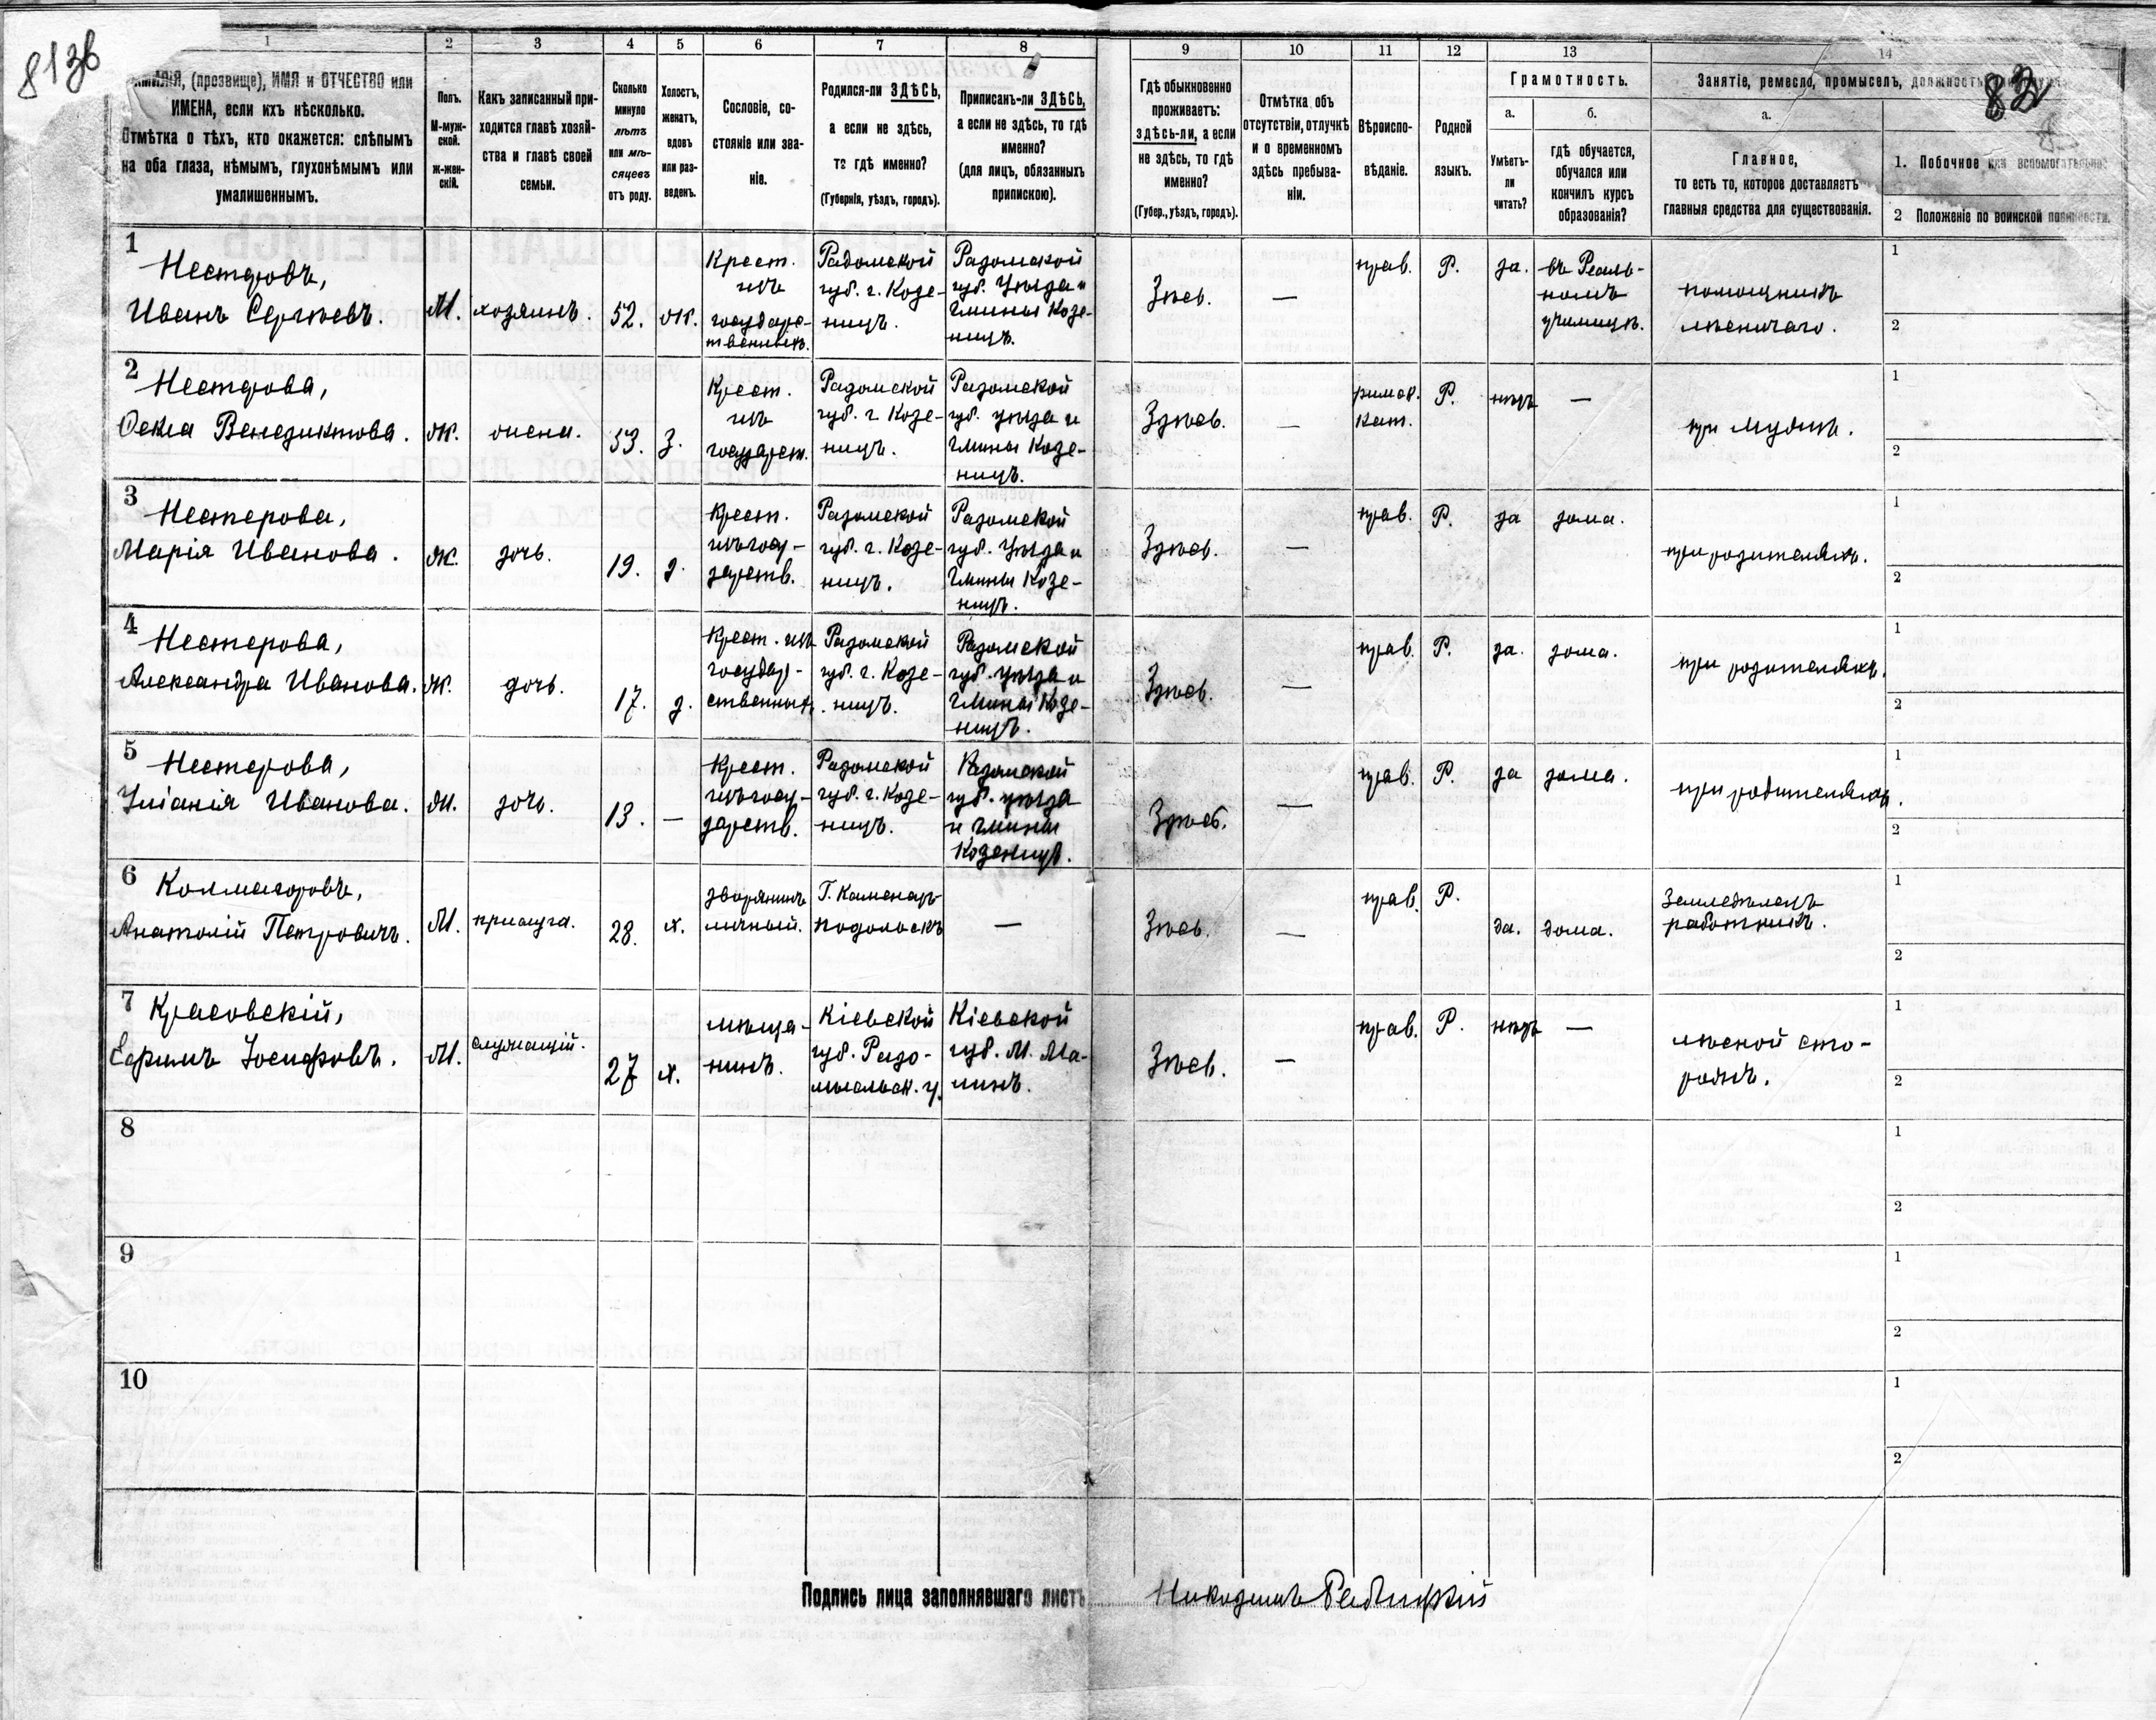 813б
1 2 3 4 5 6 7 8 9 10 11 12 13 14
(прозвище), ИМЯ и ОТЧЕСТВО или
ИМЕНА, если ихъ нѣсколько.
Отмѣтка о тѣхъ, кто окажется: слѣпымъ
на оба глаза, нѣмымъ, глухонѣмымъ или
умалишеннымъ.
Полъ.
М-муж-
ской.
Ж-жен-
скій.
Какъ записанный при-
ходится главѣ хозяй-
ства и главѣ своей
семьи.
Сколько
минуло
лѣтъ
или мѣ-
сяцевъ
отъ роду.
Холостъ,
женатъ,
вдовъ
или раз-
веденъ.
Сословіе, со-
стояніе или зва-
ніе.
Родился-ли ЗДѢСЬ,
а если не здѣсь,
то гдѣ именно?
(Губернія, уѣздъ, городъ).
Приписанъ-ли ЗДѢСЬ,
а если не здѣсь, то гдѣ
именно?
(для лицъ, обязанныхъ
припискою).
Гдѣ обыкновенно
проживаетъ:
здѣсь-ли, а если
не здѣсь, то гдѣ
именно?
(Губер., уѣздъ, городъ).
Отмѣтка объ
отсутствіи, отлучкѣ
и о временномъ
здѣсь пребыва-
ніи.
Вѣроиспо-
вѣданіе.
Родной
языкъ.
Грамотность.
а.
Умѣетъ-
ли
читать?
б.
гдѣ обучается,
обучался или
кончилъ курсъ
образованія?
Занятіе, ремесло, промыселъ, должность
82
а.
Главное,
то есть то, которое доставляетъ
главныя средства для существованія.
1. Побочное или вспомогательное
2 Положеніе по воинской повинности.
1
Нестеровъ,
Иванъ Сергѣевъ.
М.
хозяинъ.
52.
ж.
Крест.
изъ
государс-
твенныхъ.
Радомской
губ. г. Козе-
ницъ.
Радомской
губ. Уѣзда и
Гмины Козе-
ницъ.
Здѣсь.
—
прав.
Р.
да.
въ Реаль-
номъ
училищѣ.
помощникъ
лѣсничаго.
1
2
2
Нестерова,
Ѳекла Венедиктова.
ж.
жена.
53.
з.
Крест.
изъ
государст.
Радомской
губ. г. Козе-
ницъ.
Радомской
губ. уѣзда и
Гмины Козе-
ницъ.
Здѣсь.
—
римск.
кат.
Р.
нѣтъ
—
при мужѣ.
1
2
3
Нестерова,
Марія Иванова.
ж.
дочь.
19.
д.
Крест.
изъ госу-
дарств.
Радомской
губ. г. Козе-
ницъ.
Радомской
губ. Уѣзда и
Гмины Козе-
ницъ.
Здѣсь.
—
прав.
Р.
да
дома.
при родителяхъ.
1
2
4
Нестерова,
Александра Иванова.
ж.
дочь.
17.
д.
Крест. изъ
государ-
ственныхъ
Радомской
губ. г. Козе-
ницъ.
Радомской
губ. уѣзда и
Гмины Козе-
ницъ.
Здѣсь.
—
прав.
Р.
да.
дома.
при родителяхъ.
1
2
5
Нестерова,
Уліанія Иванова.
ж.
дочь.
13.
—
Крест.
изъ госу-
дарств.
Радомской
губ. г. Козе-
ницъ.
Радомской
губ. уѣзда
и Гмины
Козеницъ.
Здѣсь.
—
прав.
Р.
да
дома.
при родителяхъ.
1
2
6
Колмагоровъ,
Анатолій Петровичъ.
М.
прислуга.
28.
х.
дворянинъ
личный.
Г. Каменецъ-
подольскъ
—
Здѣсь.
—
прав.
Р.
да.
дома.
Земледѣлецъ
работникъ.
1
2
7
Красовскій,
Ефимъ Іосифовъ.
М.
служащій.
27
х.
мѣща-
нинъ.
Кіевской
губ. Радо-
мысльск. у.
Кіевской
губ. М. Ма-
линъ.
Здѣсь.
—
прав.
Р.
нѣтъ
—
лѣсной сто-
рожъ.
1
2
8
1
2
9
1
2
10
1
2
Подпись лица заполнявшаго листъ
Никодимъ